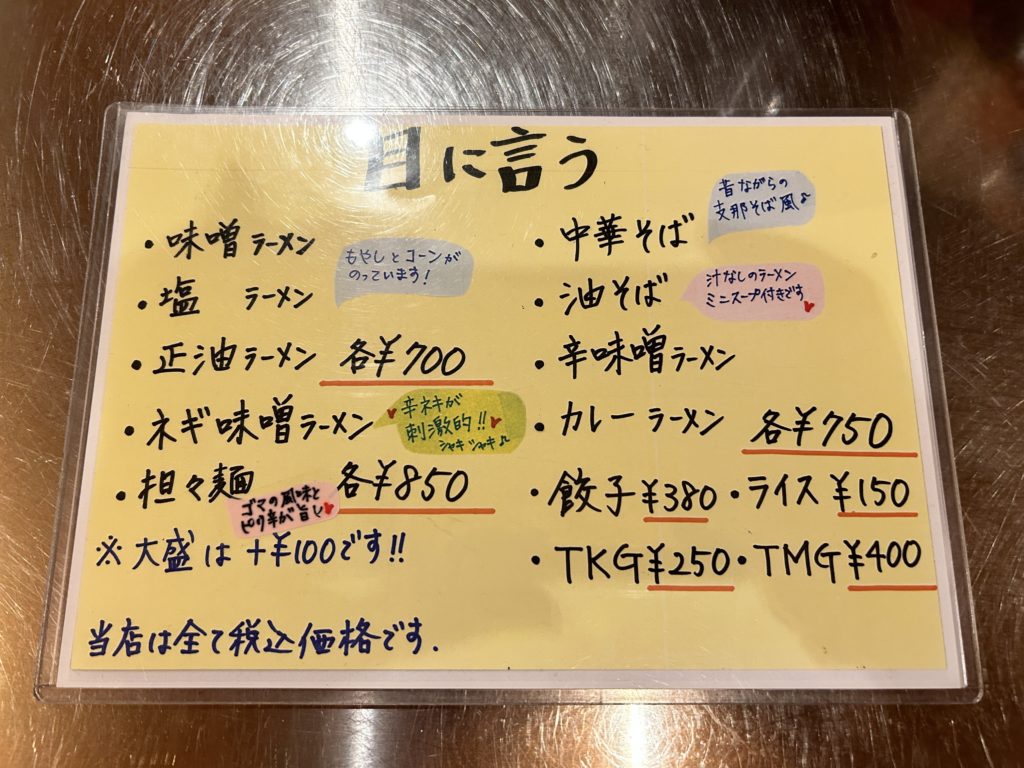 目に言う
・味噌ラーメン
・塩 ラーメン
もやしとコーンが
のっています!
・正油ラーメン 各¥700
・ネギ味噌ラーメン
辛ネギが
刺激的!!
シャキシャキ♪
・担々麺 各¥850
ゴマの風味と
ピリ辛が旨い
※大盛は+¥100です!!
当店は全て税込価格です.
・中華そば
昔ながらの
支那そば風♪
・油そば
汁なしのラーメン
ミニスープ付きです
・辛味噌ラーメン
・カレーラーメン 各¥750
・餃子¥380 ・ライス¥150
・TKG¥250 ・TMG¥400